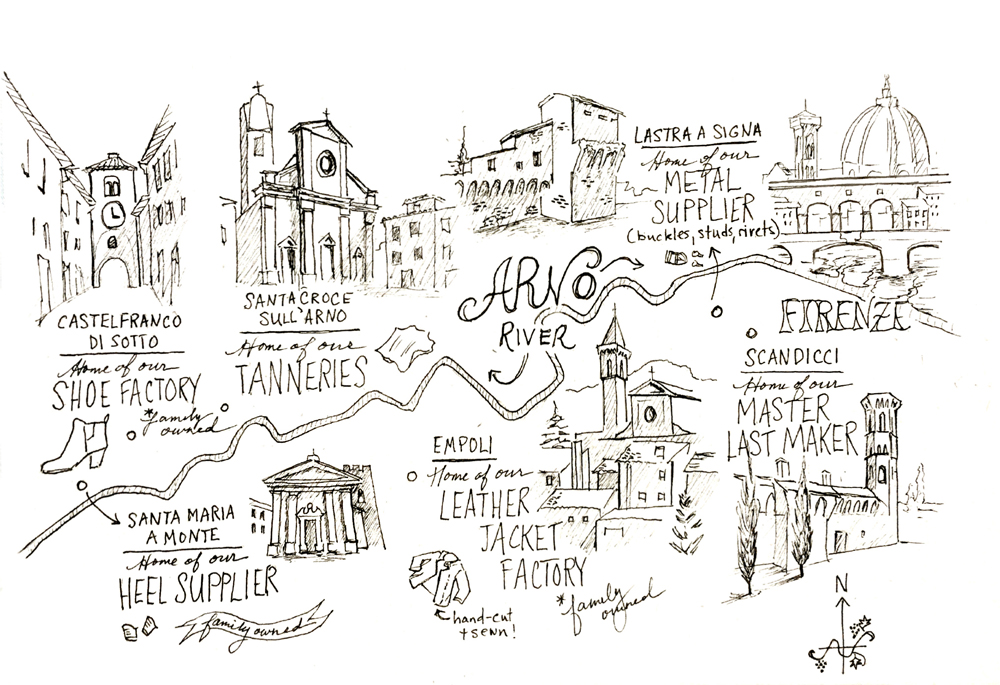 CASTELFRANCO
DI SOTTO
Home of our
SHOE FACTORY
*family
owned
SANTA CROCE
SULL'ARNO
Home of our
TANNERIES
ARNO
RIVER
LASTRA A SIGNA
Home of our
METAL
SUPPLIER
(buckles, studs, rivets)
FIRENZE
SCANDICCI
Home of our
MASTER
LAST MAKER
EMPOLI
Home of our
LEATHER
JACKET
FACTORY
*family
owned
hand-cut
+ sewn!
SANTA MARIA
A MONTE
Home of our
HEEL SUPPLIER
family owned
N